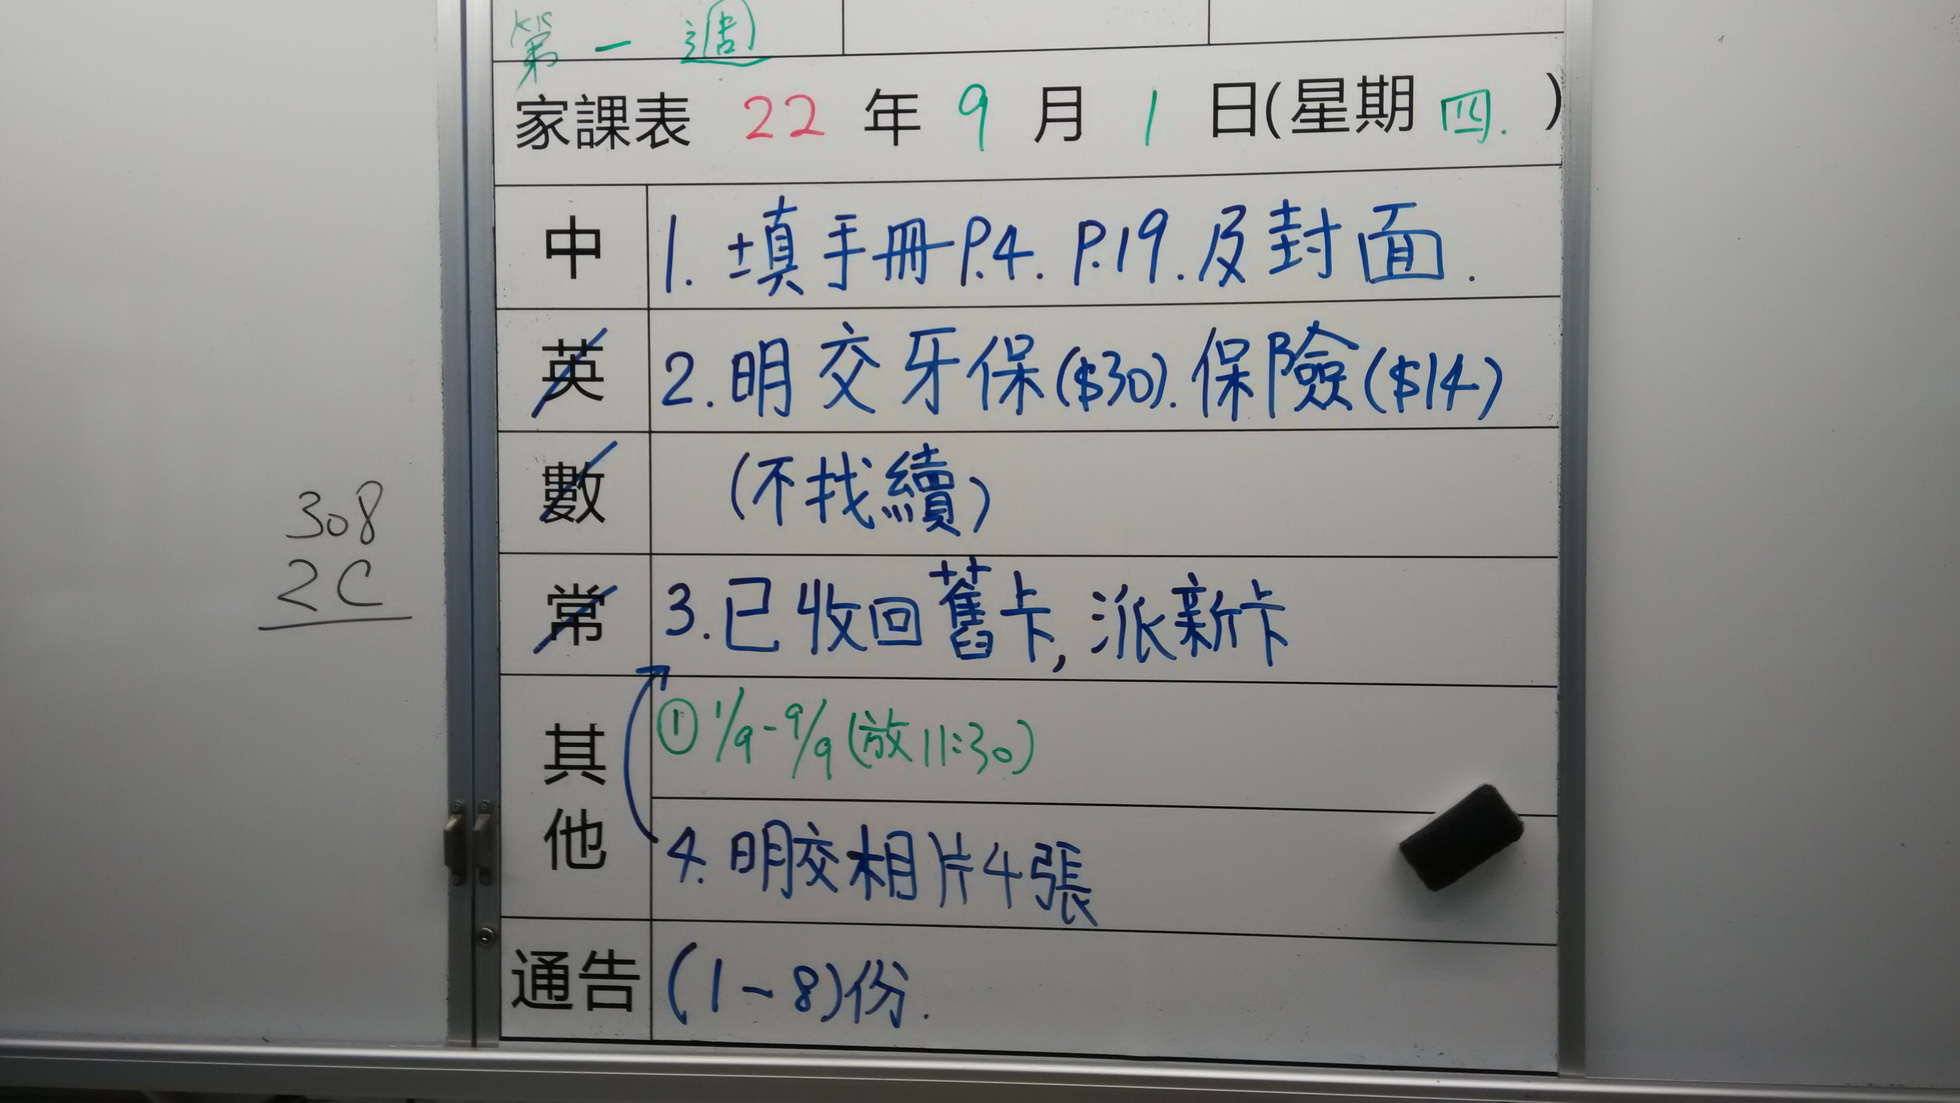 第一週
家課表 22 年 9 月 1 日(星期 四. )
中 1. 填手冊P.4. P.19.及封面.
英 2. 明交牙保($30).保險($14)
數 (不找續)
常 3. 已收回舊卡, 派新卡
其他 ① 1/9-9/9 (放11:30)
4. 明交相片4張
通告 (1-8)份.
308
2C